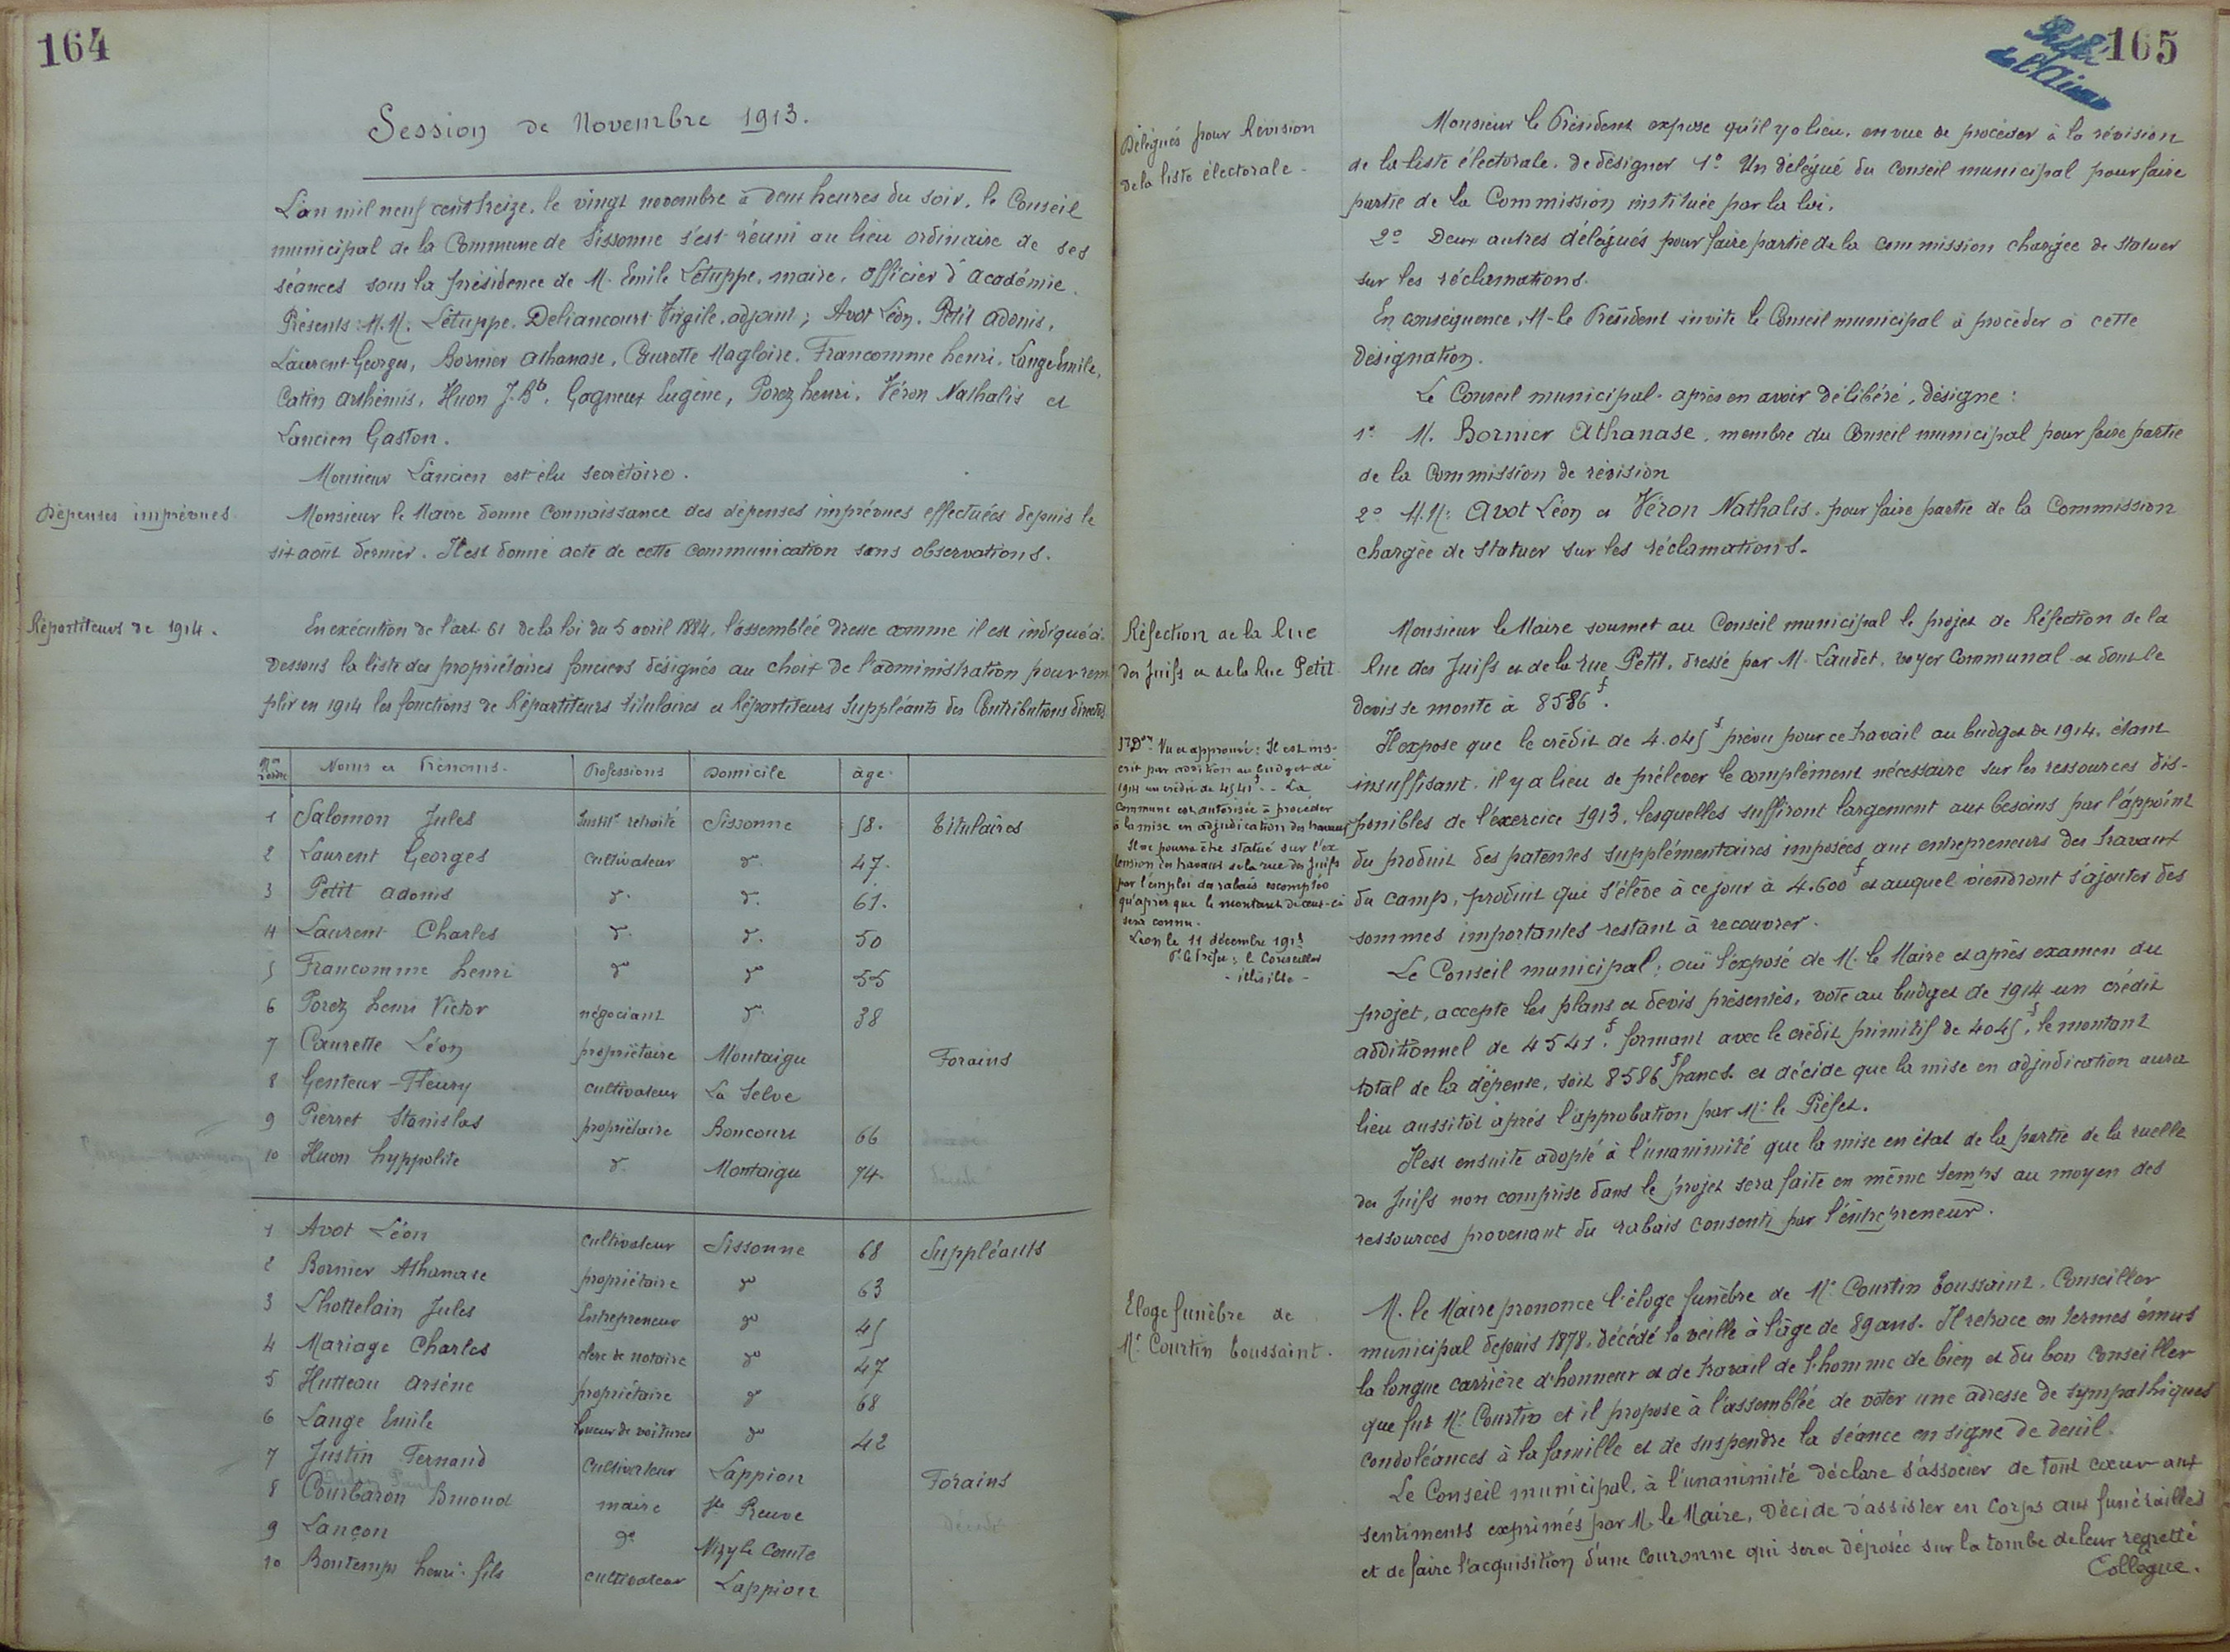 164
Session de Novembre 1913.
L'an mil neuf cent treize, le vingt novembre à deux heures du soir, le Conseil
municipal de la Commune de Sissonne s'est réuni au lieu ordinaire de ses
séances sous la présidence de M. Emile Létuppe, maire, officier d'académie.
Présents: M.M: Létuppe, Deliancourt Virgile, adjoint; Avot Léon, Petit Adonis,
Laurent Georges, Bornier Athanase, Courotte Magloire, Francomme henri, Lange Emile,
Catin Arthémis, Huon J. Bte, Gagneux Eugène, Porez henri, Véron Nathalis et
Lancien Gaston.
Monsieur Lancien est élu secrétaire.
Dépenses imprévues.
Monsieur le Maire donne connaissance des dépenses imprévues effectuées depuis le
six août dernier. Il est donné acte de cette communication sans observations.
Répartiteurs de 1914.
En exécution de l'art. 61 de la loi du 5 avril 1884, l'assemblée dresse comme il est indiqué ci-
dessous la liste des propriétaires fonciers désignés au choix de l'administration pour rem
plir en 1914 les fonctions de Répartiteurs titulaires et Répartiteurs Suppléants des Contributions directes
Nos d'ordre Noms et Prénoms. Professions Domicile âge.
1 Salomon Jules Instit. retraité Sissonne 58. Titulaires
2 Laurent Georges cultivateur do 47.
3 Petit Adonis do do 61.
4 Laurent Charles do do 50
5 Francomme henri do do 55
6 Porez henri Victor négociant do 38
7 Caurette Léon propriétaire Montaigu Forains
8 Genteur-Fleury cultivateur La Selve
9 Pierret Stanislas propriétaire Boncourt 66
10 Huon hyppolite do Montaigu 74. décédé
1 Avot Léon cultivateur Sissonne 68 Suppléants
2 Bornier Athanase propriétaire do 63
3 Lhottelain Jules Entrepreneur do 45
4 Mariage Charles clerc de notaire do 47
5 Hutteau Arsène propriétaire do 68
6 Lange Emile loueur de voitures do 42
7 Justin Fernand cultivateur Lappion Forains
8 Courbaron Edmond maire Ste Preuve
9 Lançon do Nizy le Comte décédé
10 Bontemps henri fils cultivateur Lappion
165
Préfre
de l'Aisne
Délégués pour Révision
de la liste électorale.
Monsieur le Président expose qu'il y a lieu, en vue de procéder à la révision
de la liste électorale, de désigner 1o Un délégué du Conseil municipal pour faire
partie de la Commission instituée par la loi.
2o Deux autres délégués pour faire partie de la commission chargée de statuer
sur les réclamations.
En conséquence, M. le Président invite le Conseil municipal à procéder à cette
désignation.
Le Conseil municipal, après en avoir délibéré, désigne:
1o M. Bornier Athanase, membre du Conseil municipal pour faire partie
de la Commission de révision
2o M.M: Avot Léon et Véron Nathalis, pour faire partie de la Commission
chargée de statuer sur les réclamations.
Réfection de la Rue
des Juifs et de la Rue Petit.
Monsieur le Maire soumet au Conseil municipal le projet de Réfection de la
Rue des Juifs et de la rue Petit, dressé par M. Laudet, voyer communal et dont le
devis se monte à 8586f.
Il expose que le crédit de 4.045f prévu pour ce travail au budget de 1914, étant
insuffisant, il y a lieu de prélever le complément nécessaire sur les ressources dis-
ponibles de l'exercice 1913, lesquelles suffiront largement aux besoins par l'appoint
du produit des patentes supplémentaires imposées aux entrepreneurs des travaux
du camp, produit qui s'élève à ce jour à 4.600f et auquel viendront s'ajouter des
sommes importantes restant à recouvrer.
Vu et approuvé: Il est ins-
crit par addition au budget de
1914 un crédit de 4541f. - La
Commune est autorisée à procéder
à la mise en adjudication des travaux
Il ne pourra être statué sur l'ex
tension des travaux de la rue des Juifs
par l'emploi du rabais escompté
qu'après que le montant de celui-ci
sera connu.
Laon le 11 décembre 1913
Pr le Préfet: le Conseiller
- illisible -
Le Conseil municipal; ouï l'exposé de M. le Maire et après examen du
projet, accepte les plans et devis présentés, vote au budget de 1914 un crédit
additionnel de 4541f. formant avec le crédit primitif de 4045f, le montant
total de la dépense, soit 8586f francs. et décide que la mise en adjudication aura
lieu aussitôt après l'approbation par Mr le Préfet.
Il est ensuite adopté à l'unanimité que la mise en état de la partie de la ruelle
des Juifs non comprise dans le projet sera faite en même temps au moyen des
ressources provenant du rabais consenti par l'entrepreneur.
Eloge funèbre de
Mr Courtin Toussaint.
M. le Maire prononce l'éloge funèbre de Mr Courtin Toussaint, Conseiller
municipal depuis 1878, décédé la veille à l'âge de 89 ans. Il retrace en termes émus
la longue carrière d'honneur et de travail de l'homme de bien et du bon conseiller
que fut Mr Courtin et il propose à l'assemblée de voter une adresse de sympathiques
condoléances à la famille et de suspendre la séance en signe de deuil.
Le Conseil municipal, à l'unanimité déclare s'associer de tout cœur aux
sentiments exprimés par M. le Maire, décide d'assister en corps aux funérailles
et de faire l'acquisition d'une couronne qui sera déposée sur la tombe de leur regretté
Collègue.